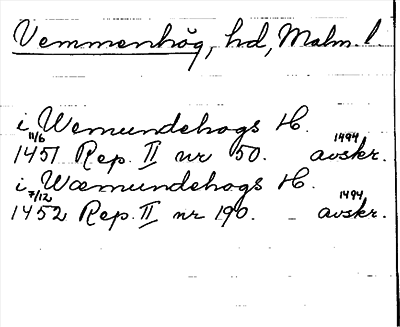 Vemmenhög, hd, Malm. l.
i Wemundehogs H.
11/6 1494
1451 Rep. II nr 50. avskr.
i Wæmundehogs H.
7/12 1494
1452 Rep. II nr 190. avskr.